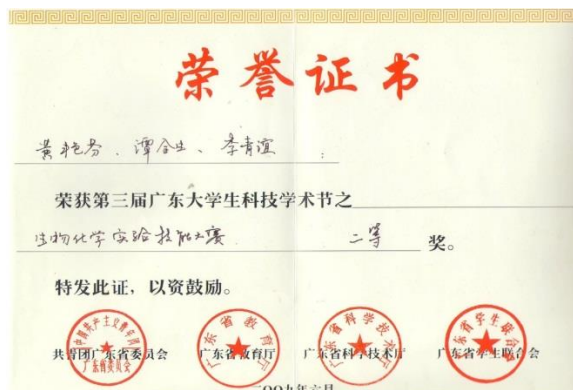 荣誉证书
黄艳芬、谭合生、李青谊:
荣获第三届广东大学生科技学术节之
生物化学实验技能大赛 二等 奖。
特发此证,以资鼓励。
共青团广东省委员会 广东省教育厅 广东省科学技术厅 广东省学生联合会
二〇〇九年六月